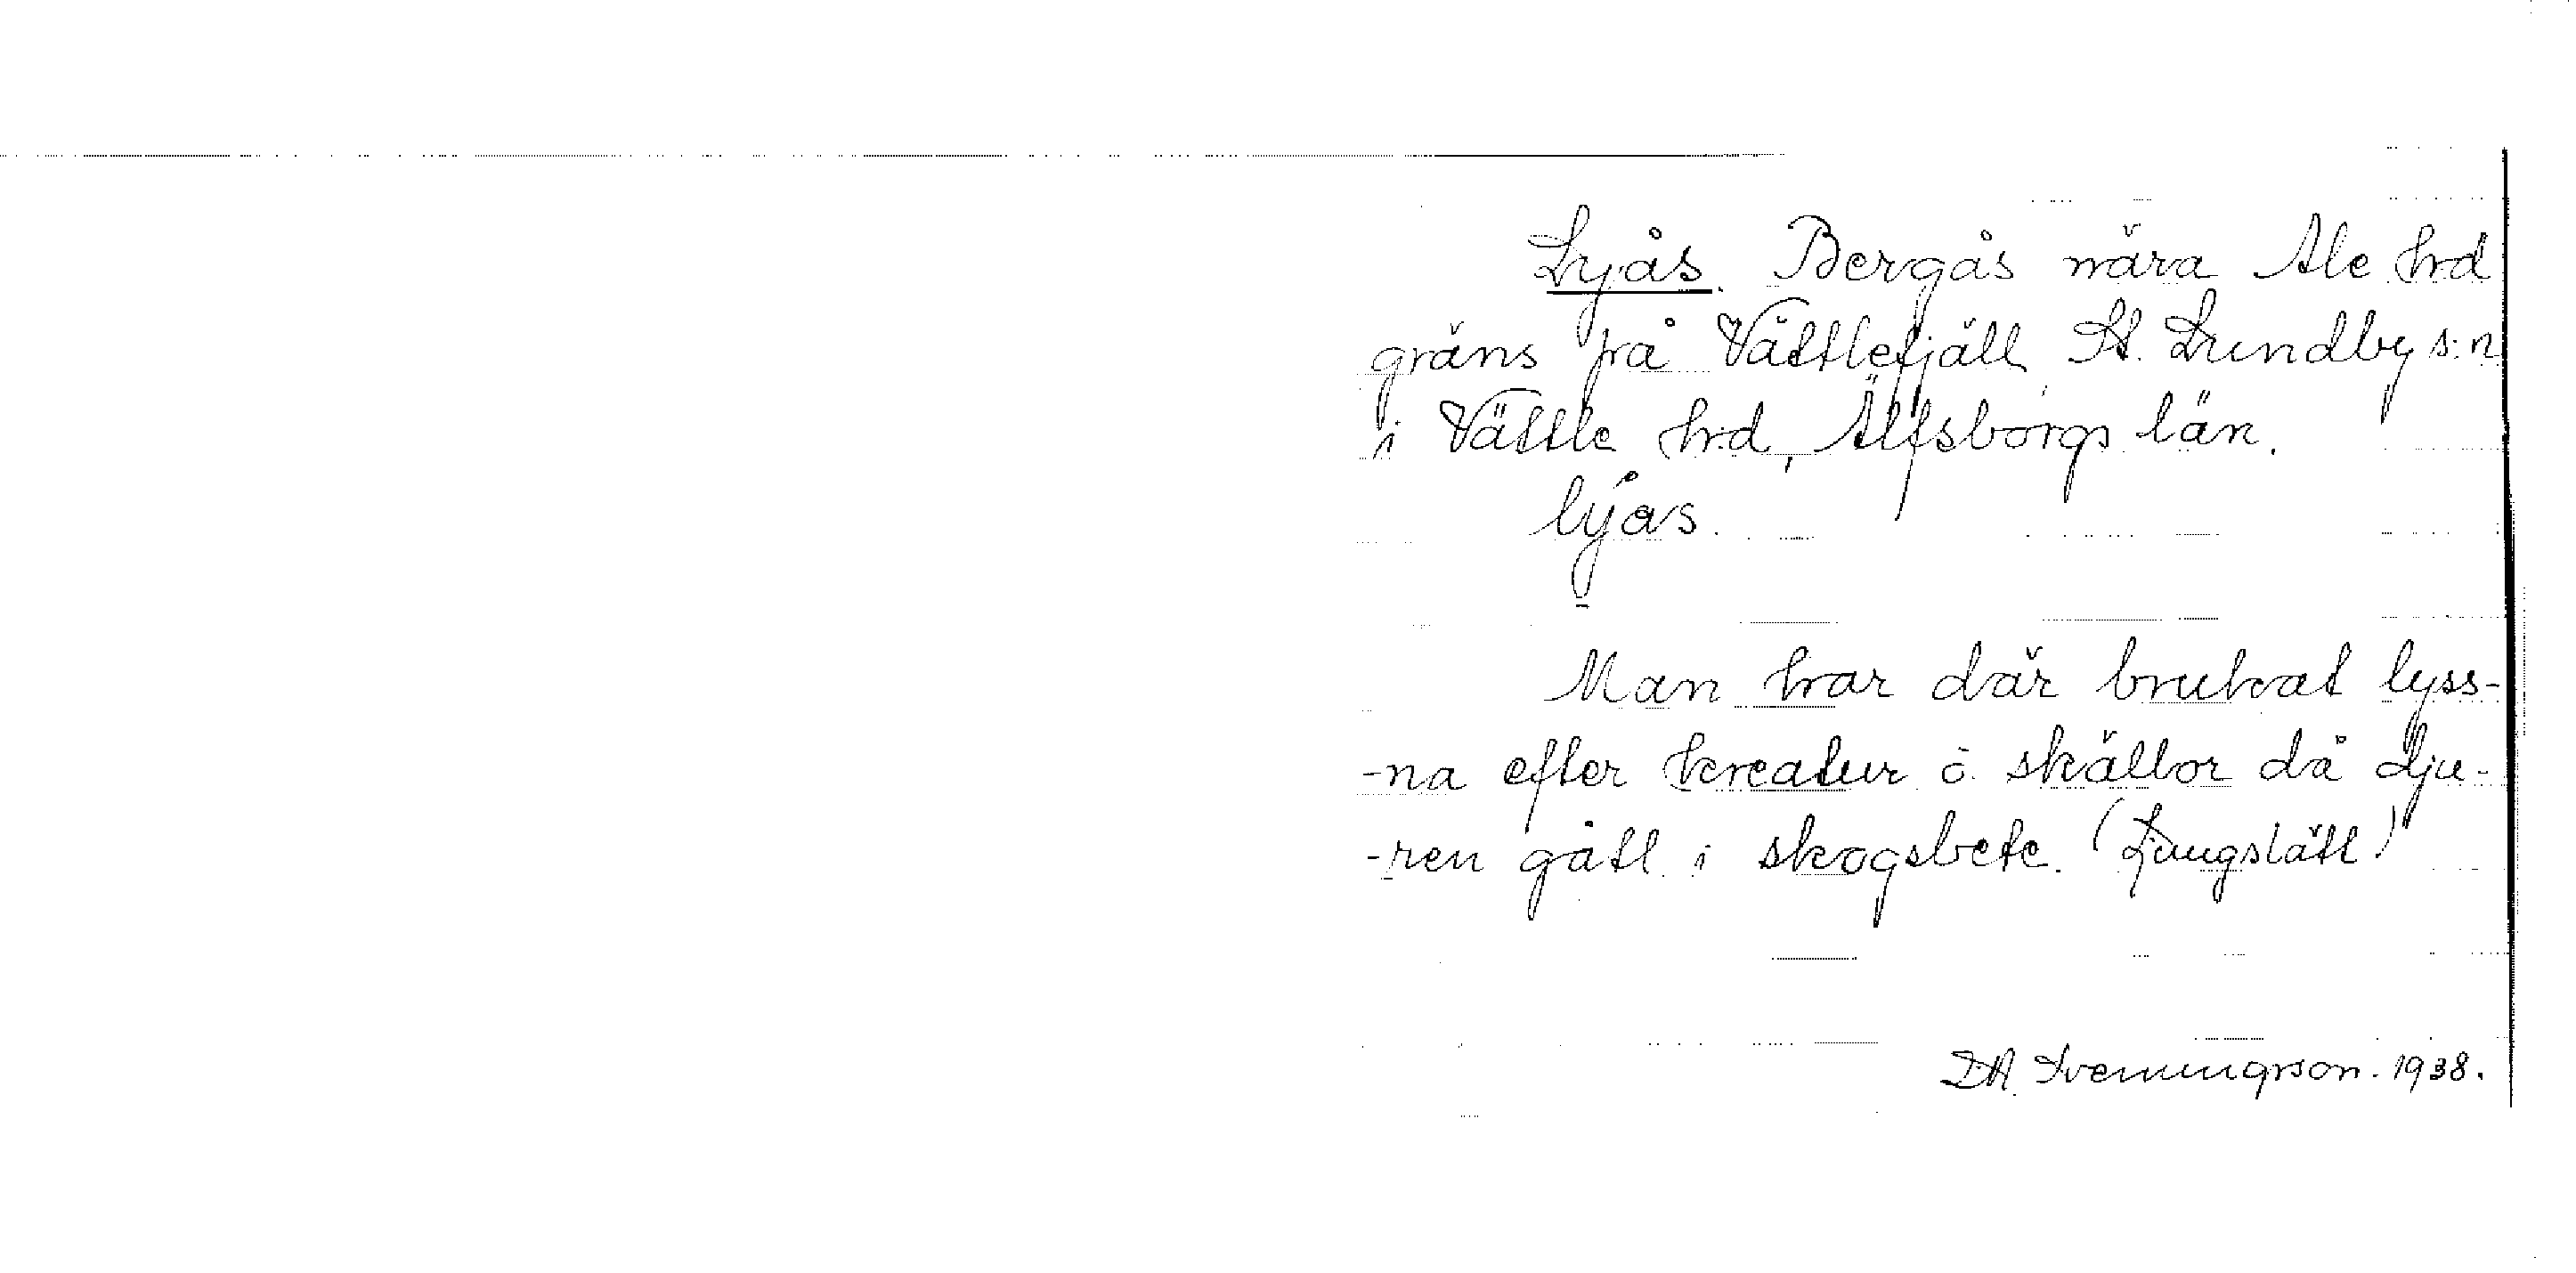 Lyås. Bergås nära Ale hrd
gräns på Vättlefjäll, St. Lundby s:n
i Vättle hrd, Älfsborgs län.
lyås.
Man har där brukat lyss-
-na efter kreatur o. skällor då dju-
-ren gått i skogsbete. (Ljungslätt)
DA. Svenningson. 1938.